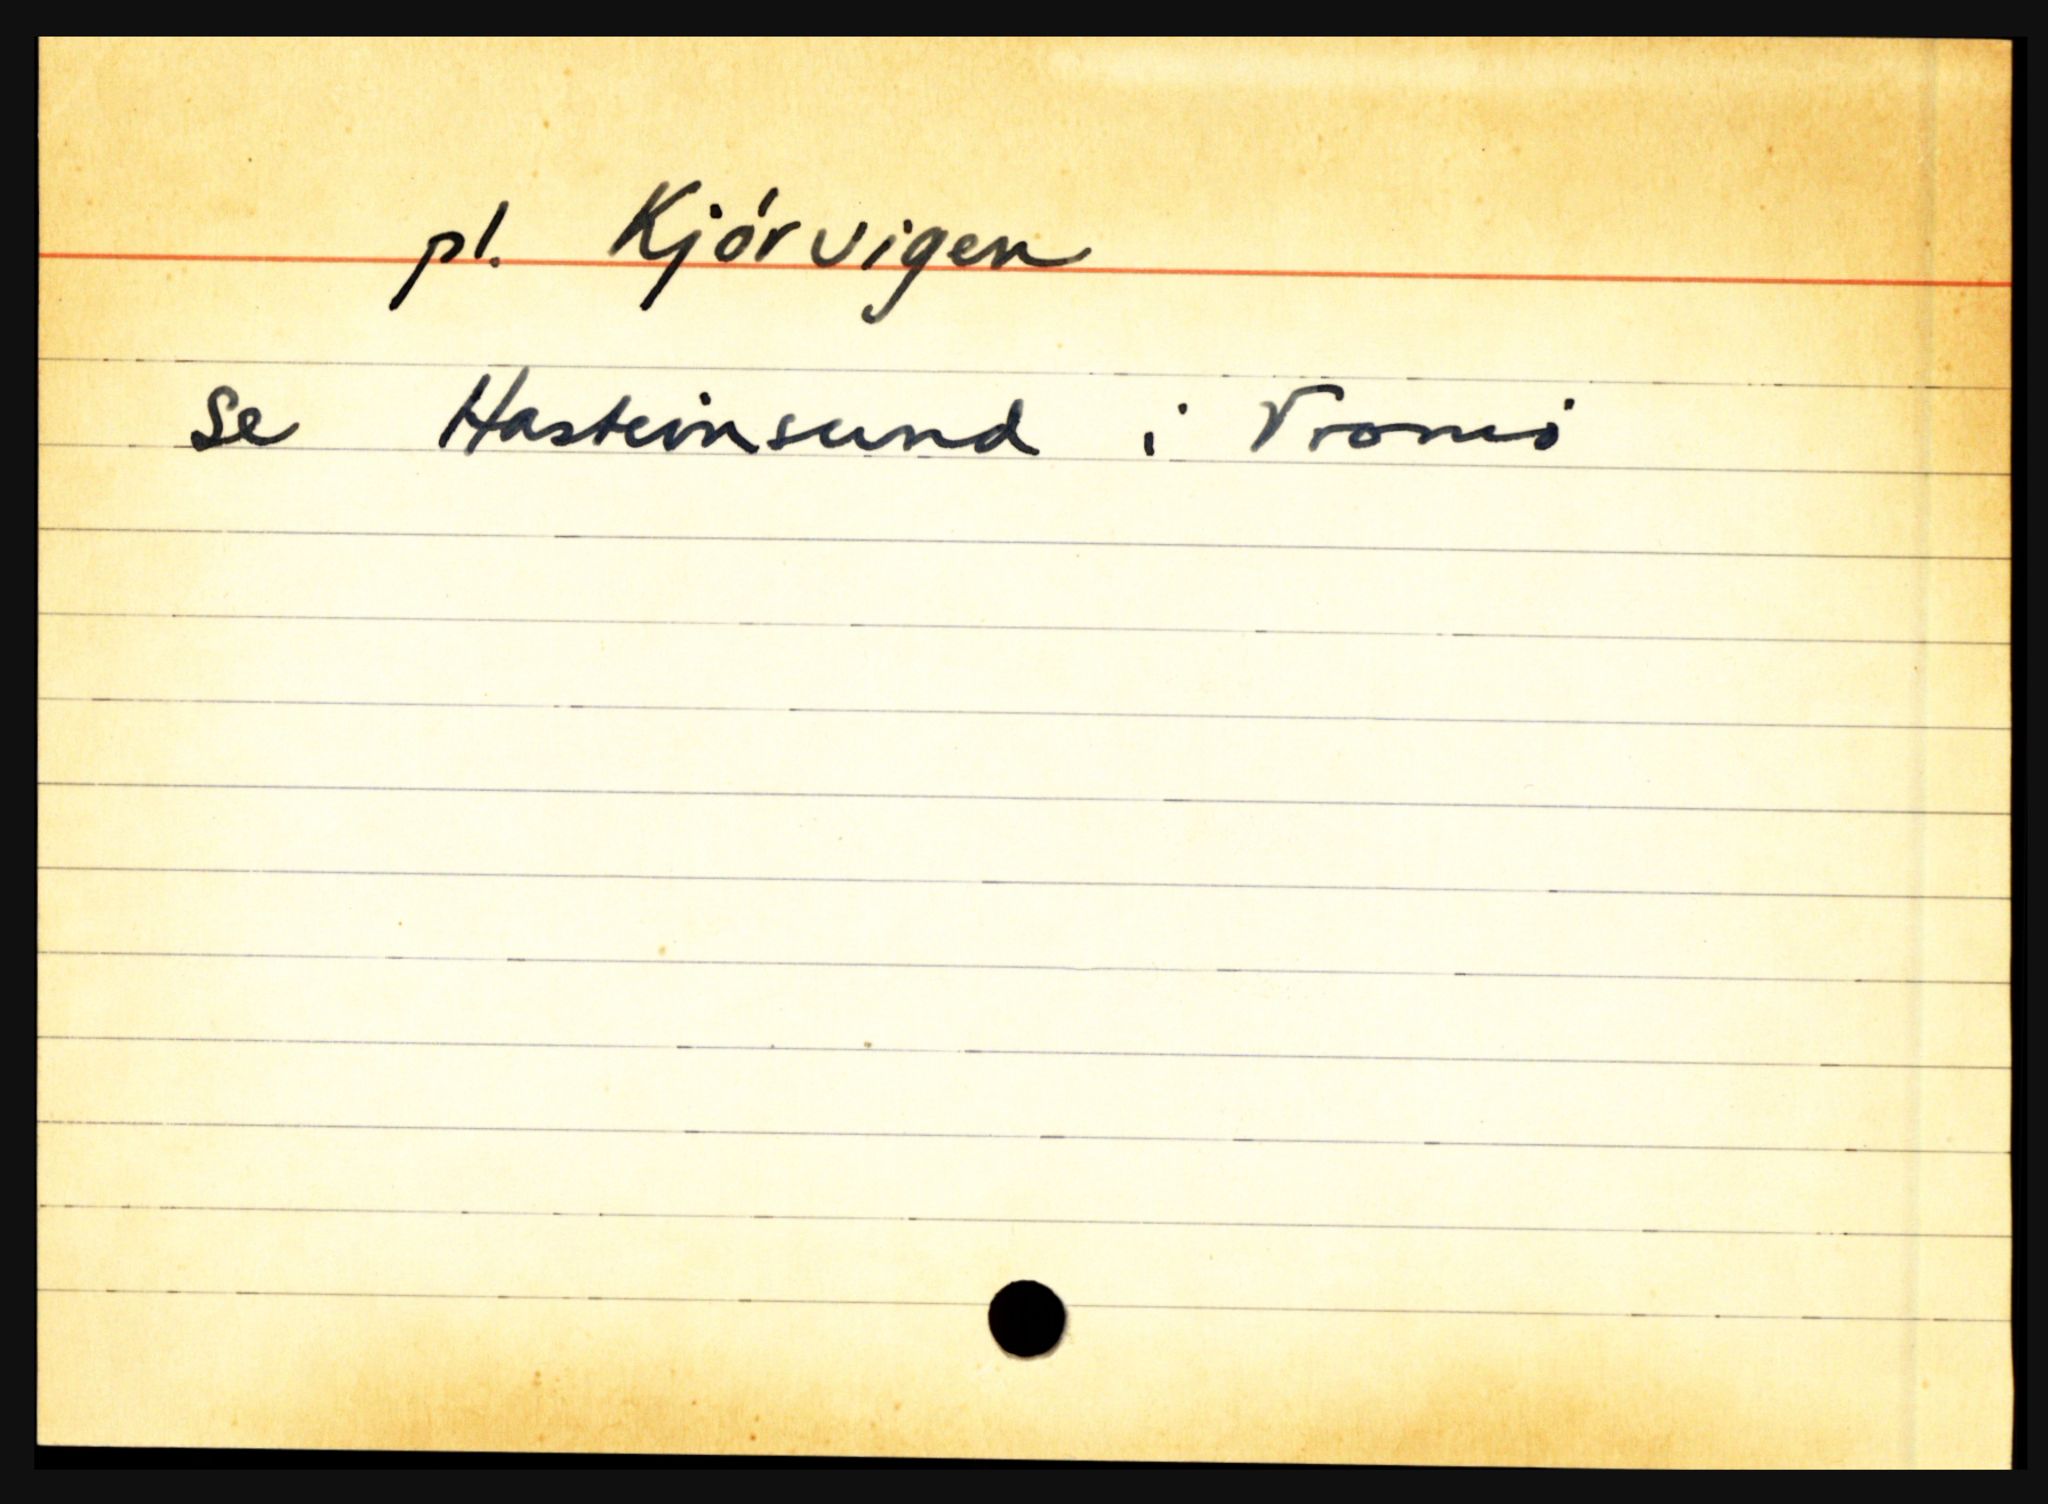 pl. Kjórvigen
Se Hasteinsund i Tromó